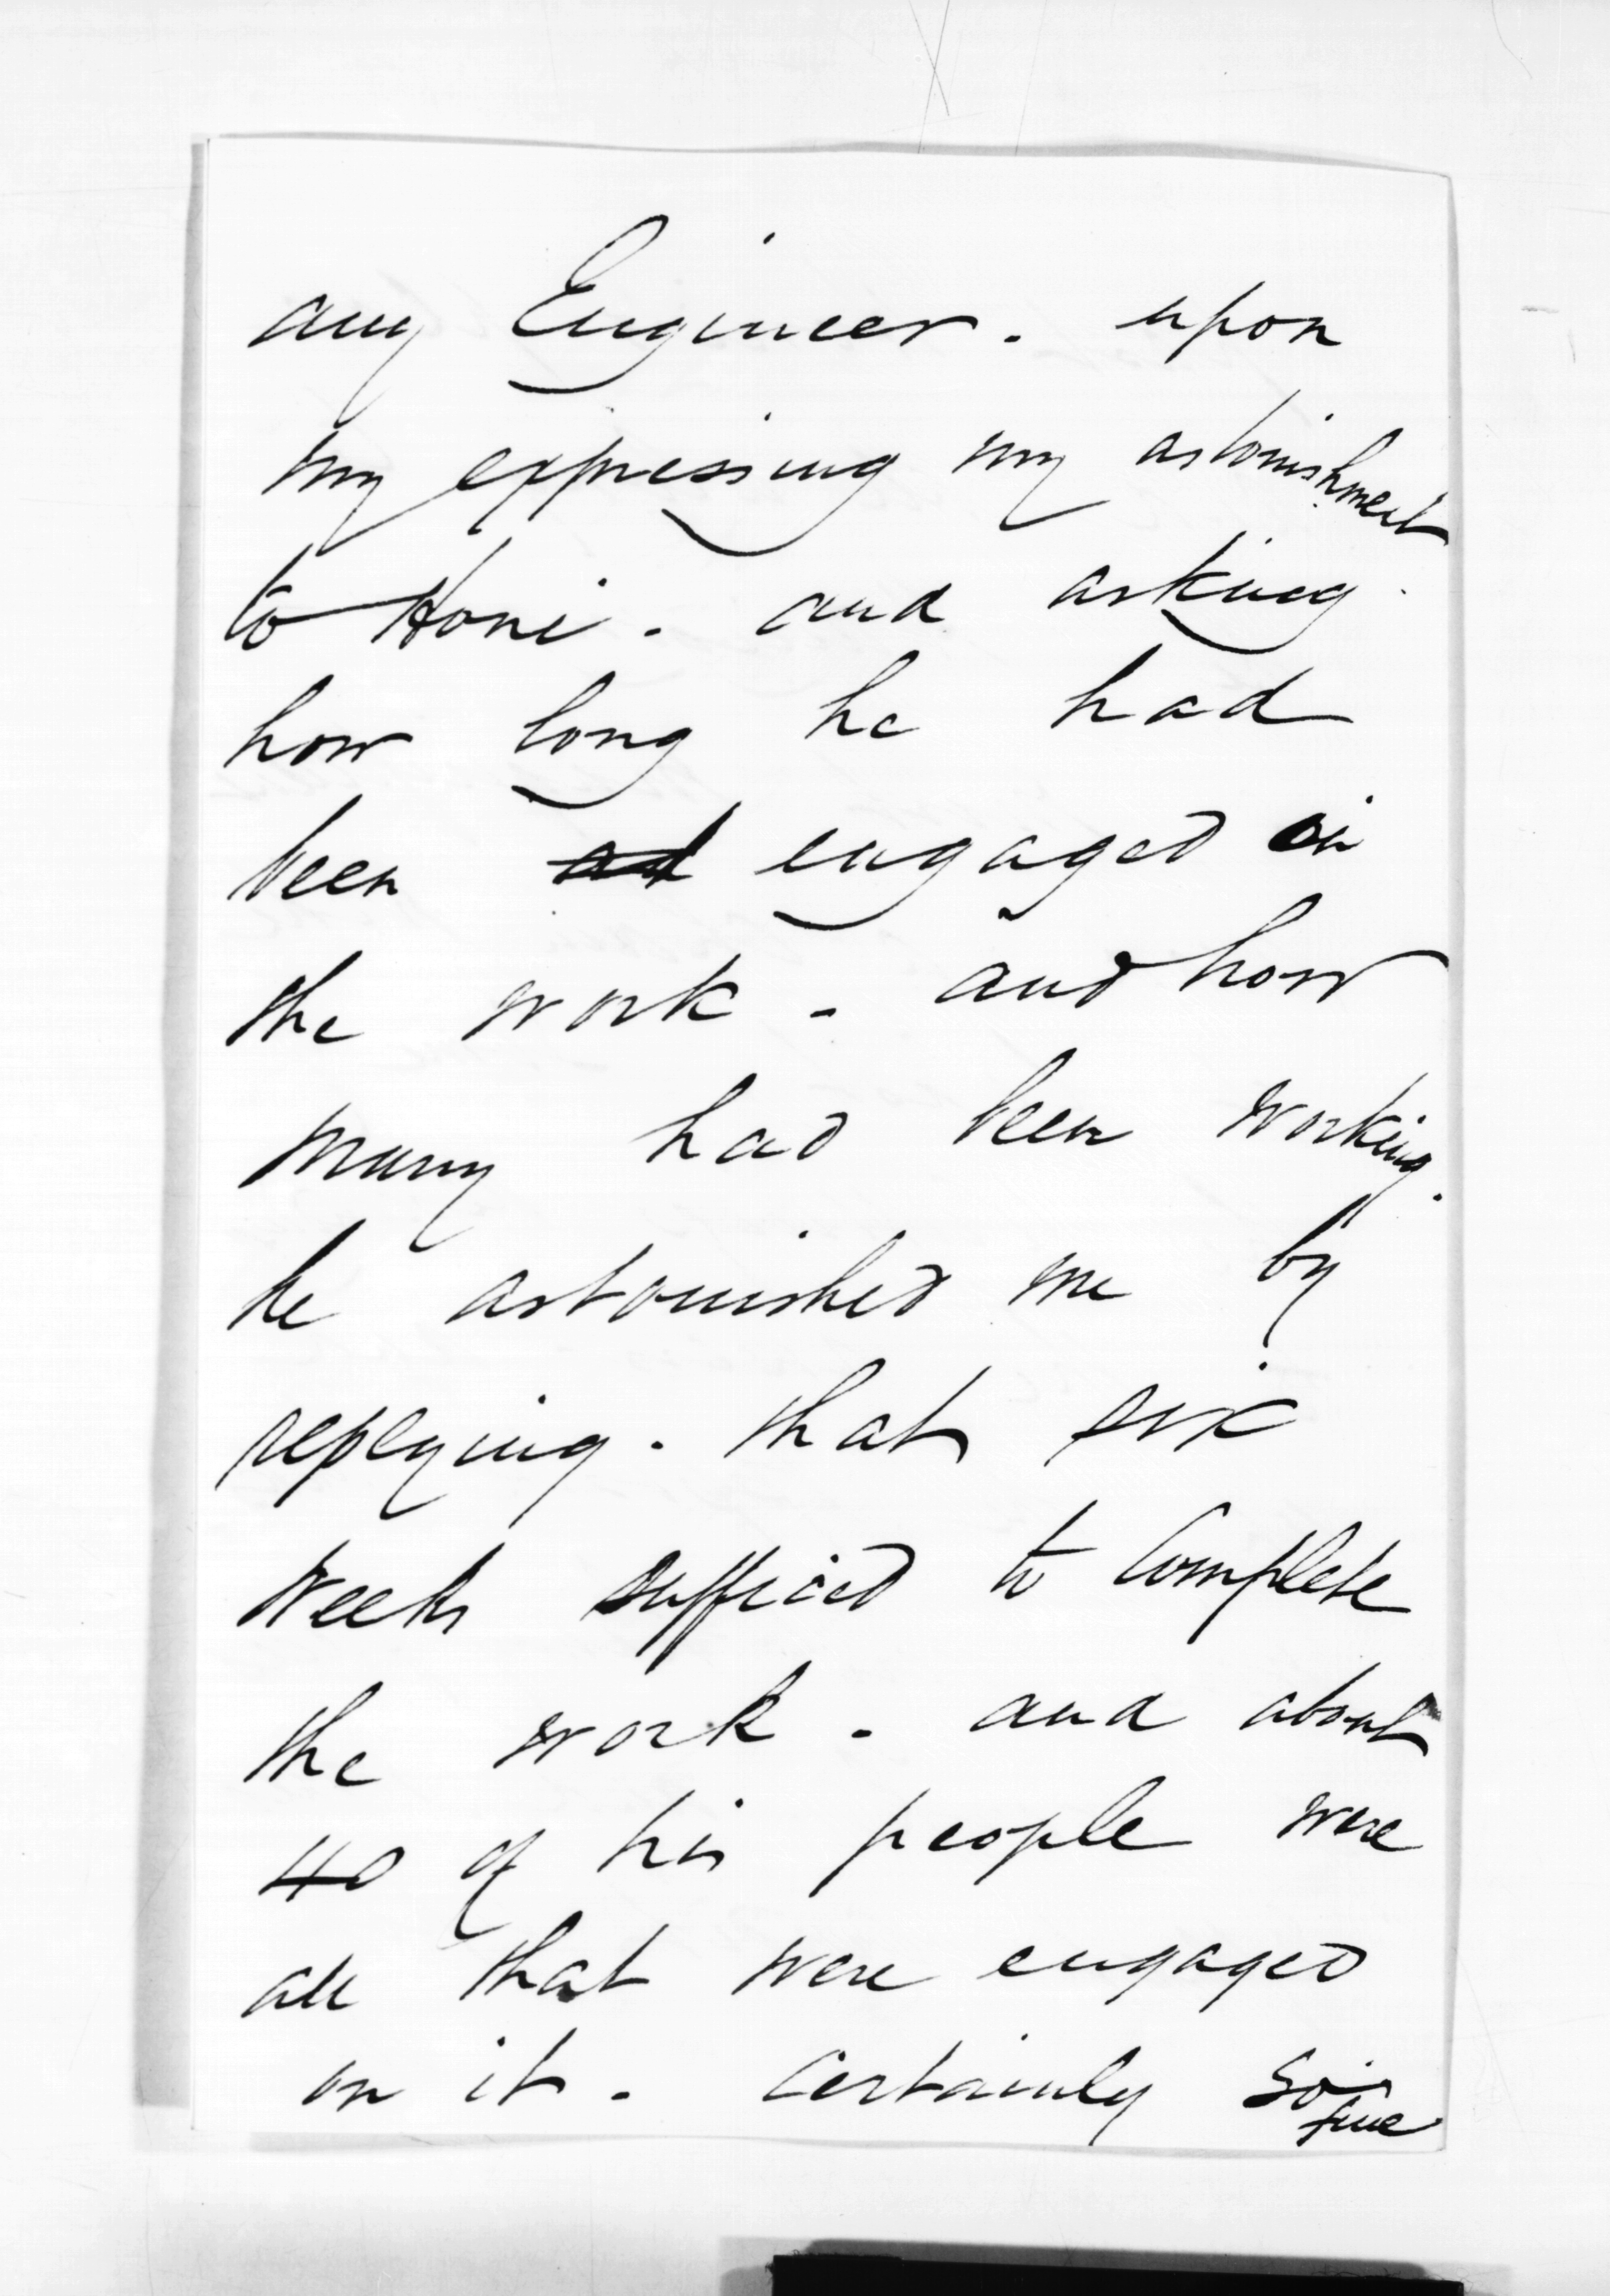 any Engineer. upon
my expressing my astonishment
to Honi. and asking
how long he had
been engaged in
the work. and how
many had been working.
he astonished me by
replying. that six
weeks sufficed to complete
the work. and about
40 of his people were
all that were engaged
on it. Certainly so
fine